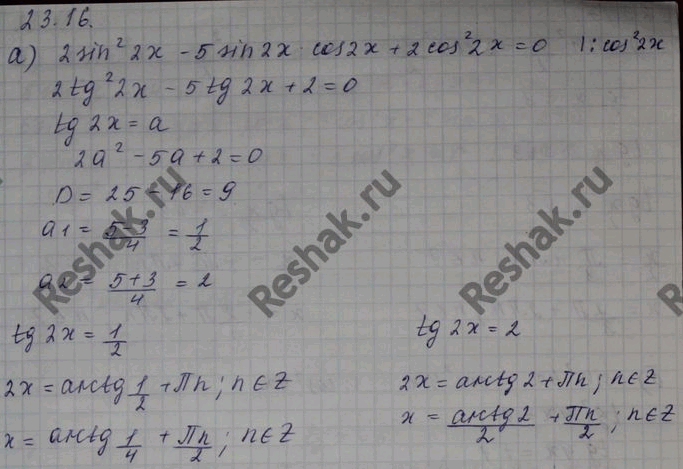 23.16.
а) 2 sin² 2x - 5 sin 2x · cos 2x + 2 cos² 2x = 0 |: cos² 2x
2 tg² 2x - 5 tg 2x + 2 = 0
tg 2x = a
2a² - 5a + 2 = 0
D = 25 - 16 = 9
a1 = (5-3)/4 = 1/2
a2 = (5+3)/4 = 2
tg 2x = 1/2
2x = arctg 1/2 + Πn; n ∈ Z
x = arctg 1/4 + Πn/2; n ∈ Z
tg 2x = 2
2x = arctg 2 + Πn; n ∈ Z
x = arctg 2/2 + Πn/2; n ∈ Z
Reshak.ru
Reshak.ru
Reshak.ru